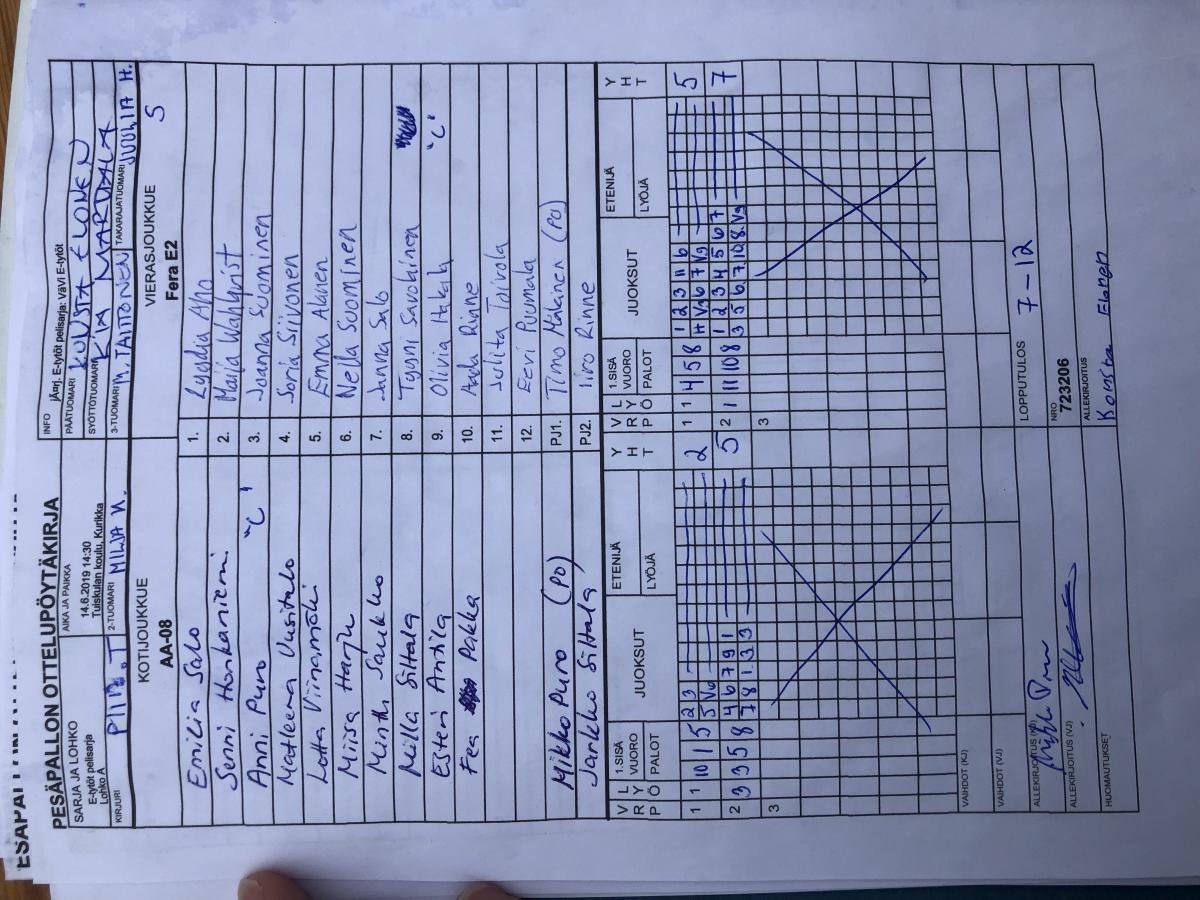 PESÄPALLON OTTELUPÖYTÄKIRJA
SARJA JA LOHKO
E-tytöt pelisarja
Lohko A
AIKA JA PAIKKA
14.6.2019 14:30
Tuiskulan koulu, Kurikka
INFO
jÄrnj. E-tytöt pelisarja: VäVi E-tytöt
PÄÄTUOMARI KONSTA ELONEN
SYÖTTÖTUOMARI KIA MARDALA
KIRJURI PIIP. T
2-TUOMARI MILJA N.
3-TUOMARI M. TAITONEN
TAKARAJATUOMARI JUULIA H.
KOTIJOUKKUE
AA-08
VIERASJOUKKUE
Fera E2 S
Emilia Salo 1. Lyydia Aho
Senni Honkaniemi 2. Maija Wahlqvist
Anni Puro "C" 3. Joanna Suominen
Matleena Uusitalo 4. Sonja Siivonen
Lotta Viinamäki 5. Emma Aanen
Miisa Harju 6. Nella Suominen
Minttu Saukko 7. Janna Salo
Milla Siltala 8. Tyyni Savolainen
Esteri Antila 9. Olivia Hakala "C"
Fea Pakka 10. Aada Rinne
11. Julita Toivola
12. Eevi Puumala
Mikko Puro (PO) PJ1. Timo Mäkinen (PO)
Jarkko Siltala PJ2. Iiro Rinne
V R P L Y Ö 1.SISÄ VUORO PALOT JUOKSUT ETENIJÄ LYÖJÄ Y H T
V R P L Y Ö 1.SISÄ VUORO PALOT JUOKSUT ETENIJÄ LYÖJÄ Y H T
1 1 10 1 5 2 3 2
5 Vo
1 1 4 5 8 1 2 3 11 6 5
H Va 6 7 Vg
2 3 3 5 8 4 6 7 9 1 5
7 8 1 3 3
2 1 11 10 8 1 2 3 4 5 6 7 7
3 5 6 7 10 8 Vg
3
3
VAIHDOT (KJ)
VAIHDOT (VJ)
ALLEKIRJOITUS (KJ) Mikko Puro
LOPPUTULOS 7 - 12
ALLEKIRJOITUS (VJ)
NRO
723206
HUOMAUTUKSET
ALLEKIRJOITUS
Konsta Elonen